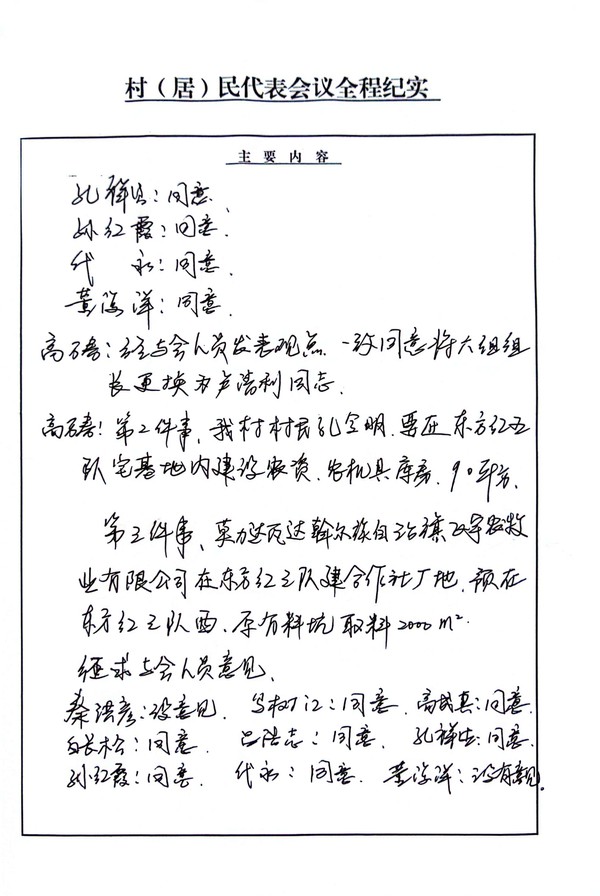 村（居）民代表会议全程纪实
主要内容
孔祥生：同意.
孙红霞：同意.
代 永：同意.
黄海洋：同意.
高石磊：经与会人员发表观点.一致同意将六组组
长更换为卢浩利同志.
高石磊：第2件事，我村村民孔全明.要在东方红五
队宅基地内建设农资.农机具库房.90平方.
第三件事、莫力达瓦达斡尔族自治旗农牧
业有限公司在东方红三队建合作社厂地.预在
东方红三队西.原有料坑取料2000m².
征求与会人员意见.
秦洪彦：没意见. 树江：同意. 高武真：同意.
白长松：同意. 吕浩志：同意. 孔祥生：同意.
孙红霞：同意. 代永：同意. 黄海洋：没有意见.